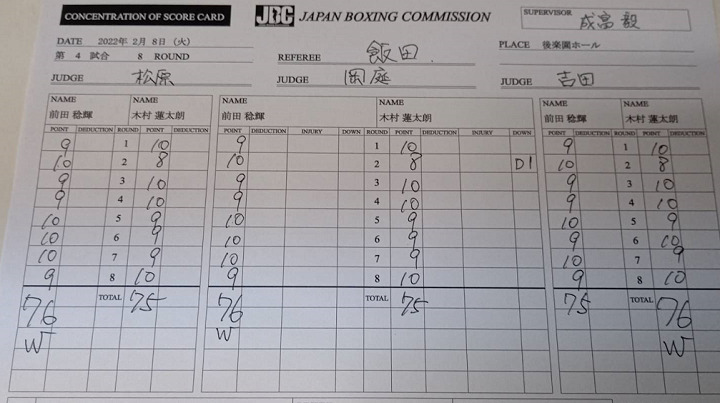 CONCENTRATION OF SCORE CARD
JBC JAPAN BOXING COMMISSION
SUPERVISOR 成富 毅
DATE 2022年 2月 8日 (火)
第 4 試合 8 ROUND
REFEREE 飯田
PLACE 後楽園ホール
JUDGE 松原 JUDGE 岡庭 JUDGE 吉田
NAME NAME NAME NAME NAME NAME
前田 稔輝 木村 蓮太朗 前田 稔輝 木村 蓮太朗 前田 稔輝 木村 蓮太朗
POINT DEDUCTION ROUND POINT DEDUCTION POINT DEDUCTION INJURY DOWN ROUND POINT DEDUCTION INJURY DOWN POINT DEDUCTION ROUND POINT DEDUCTION
9 1 10 9 1 10 9 1 10
10 2 8 10 2 8 D1 10 2 8
9 3 10 9 3 10 9 3 10
9 4 10 9 4 10 9 4 10
10 5 9 10 5 9 10 5 9
10 6 9 10 6 9 9 6 10
10 7 9 10 7 9 10 7 9
9 8 10 9 8 10 9 8 10
76 TOTAL 75 76 TOTAL 75 75 TOTAL 76
W W W